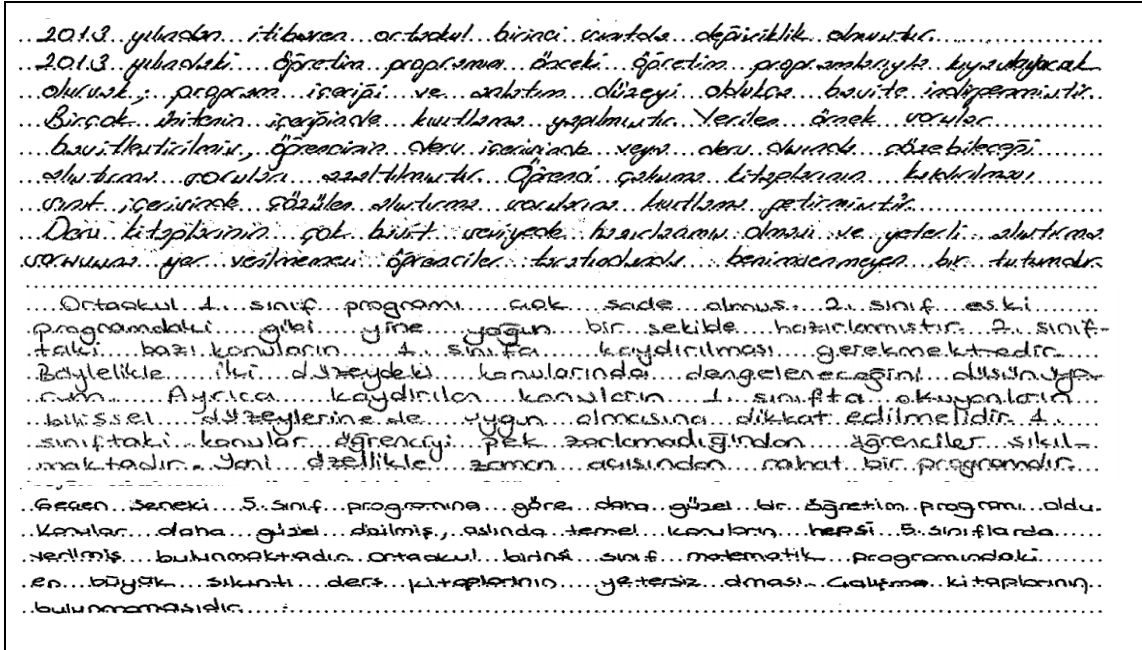 2013 yılından itibaren ortaokul birinci sınıfta değişiklik olmuştur.
2013 yılındaki öğretim programını önceki öğretim programlarıyla kıyaslayacak
olursak; program içeriği ve anlatım düzeyi oldukça basite indirgenmiştir.
Birçok ünitenin içeriğinde kısıtlama yapılmıştır. Verilen örnek sorular
basitleştirilmiş, öğrencinin ders içerisinde veya ders dışında çözebileceği
alıştırma soruları azaltılmıştır. Öğrenci çalışma kitaplarının kaldırılması
sınıf içerisinde çözülen alıştırma sorularına kısıtlama getirmiştir.
Ders kitaplarının çok basit seviyede hazırlanmış olması ve yeterli alıştırma
sorusuna yer verilmemesi öğrenciler tarafından benimsenmeyen bir tutumdur.
Ortaokul 1. sınıf programı çok sade olmuş. 2. sınıf eski
programdaki gibi yine yoğun bir şekilde hazırlanmıştır. 2. sınıf-
taki bazı konuların 1. sınıfa kaydırılması gerekmektedir.
Böylelikle iki düzeydeki konularında dengeleneceğini düşünüyo-
rum. Ayrıca kaydırılan konuların 1. sınıfta okuyanların
bilişsel düzeylerine de uygun olmasına dikkat edilmelidir. 1.
sınıftaki konular öğrenciyi pek zorlamadığından öğrenciler sıkıl-
maktadır. Yani özellikle zaman açısından rahat bir programdır.
Geçen seneki 5. sınıf programına göre daha güzel bir öğretim programı oldu.
Konular daha güzel dağılmış, aslında temel konuların hepsi 5. sınıflarda
verilmiş bulunmaktadır. Ortaokul birinsi sınıf matematik programındaki
en büyük sıkıntı ders kitaplarının yetersiz olması. Çalışma kitaplarının
bulunmamasıdır.